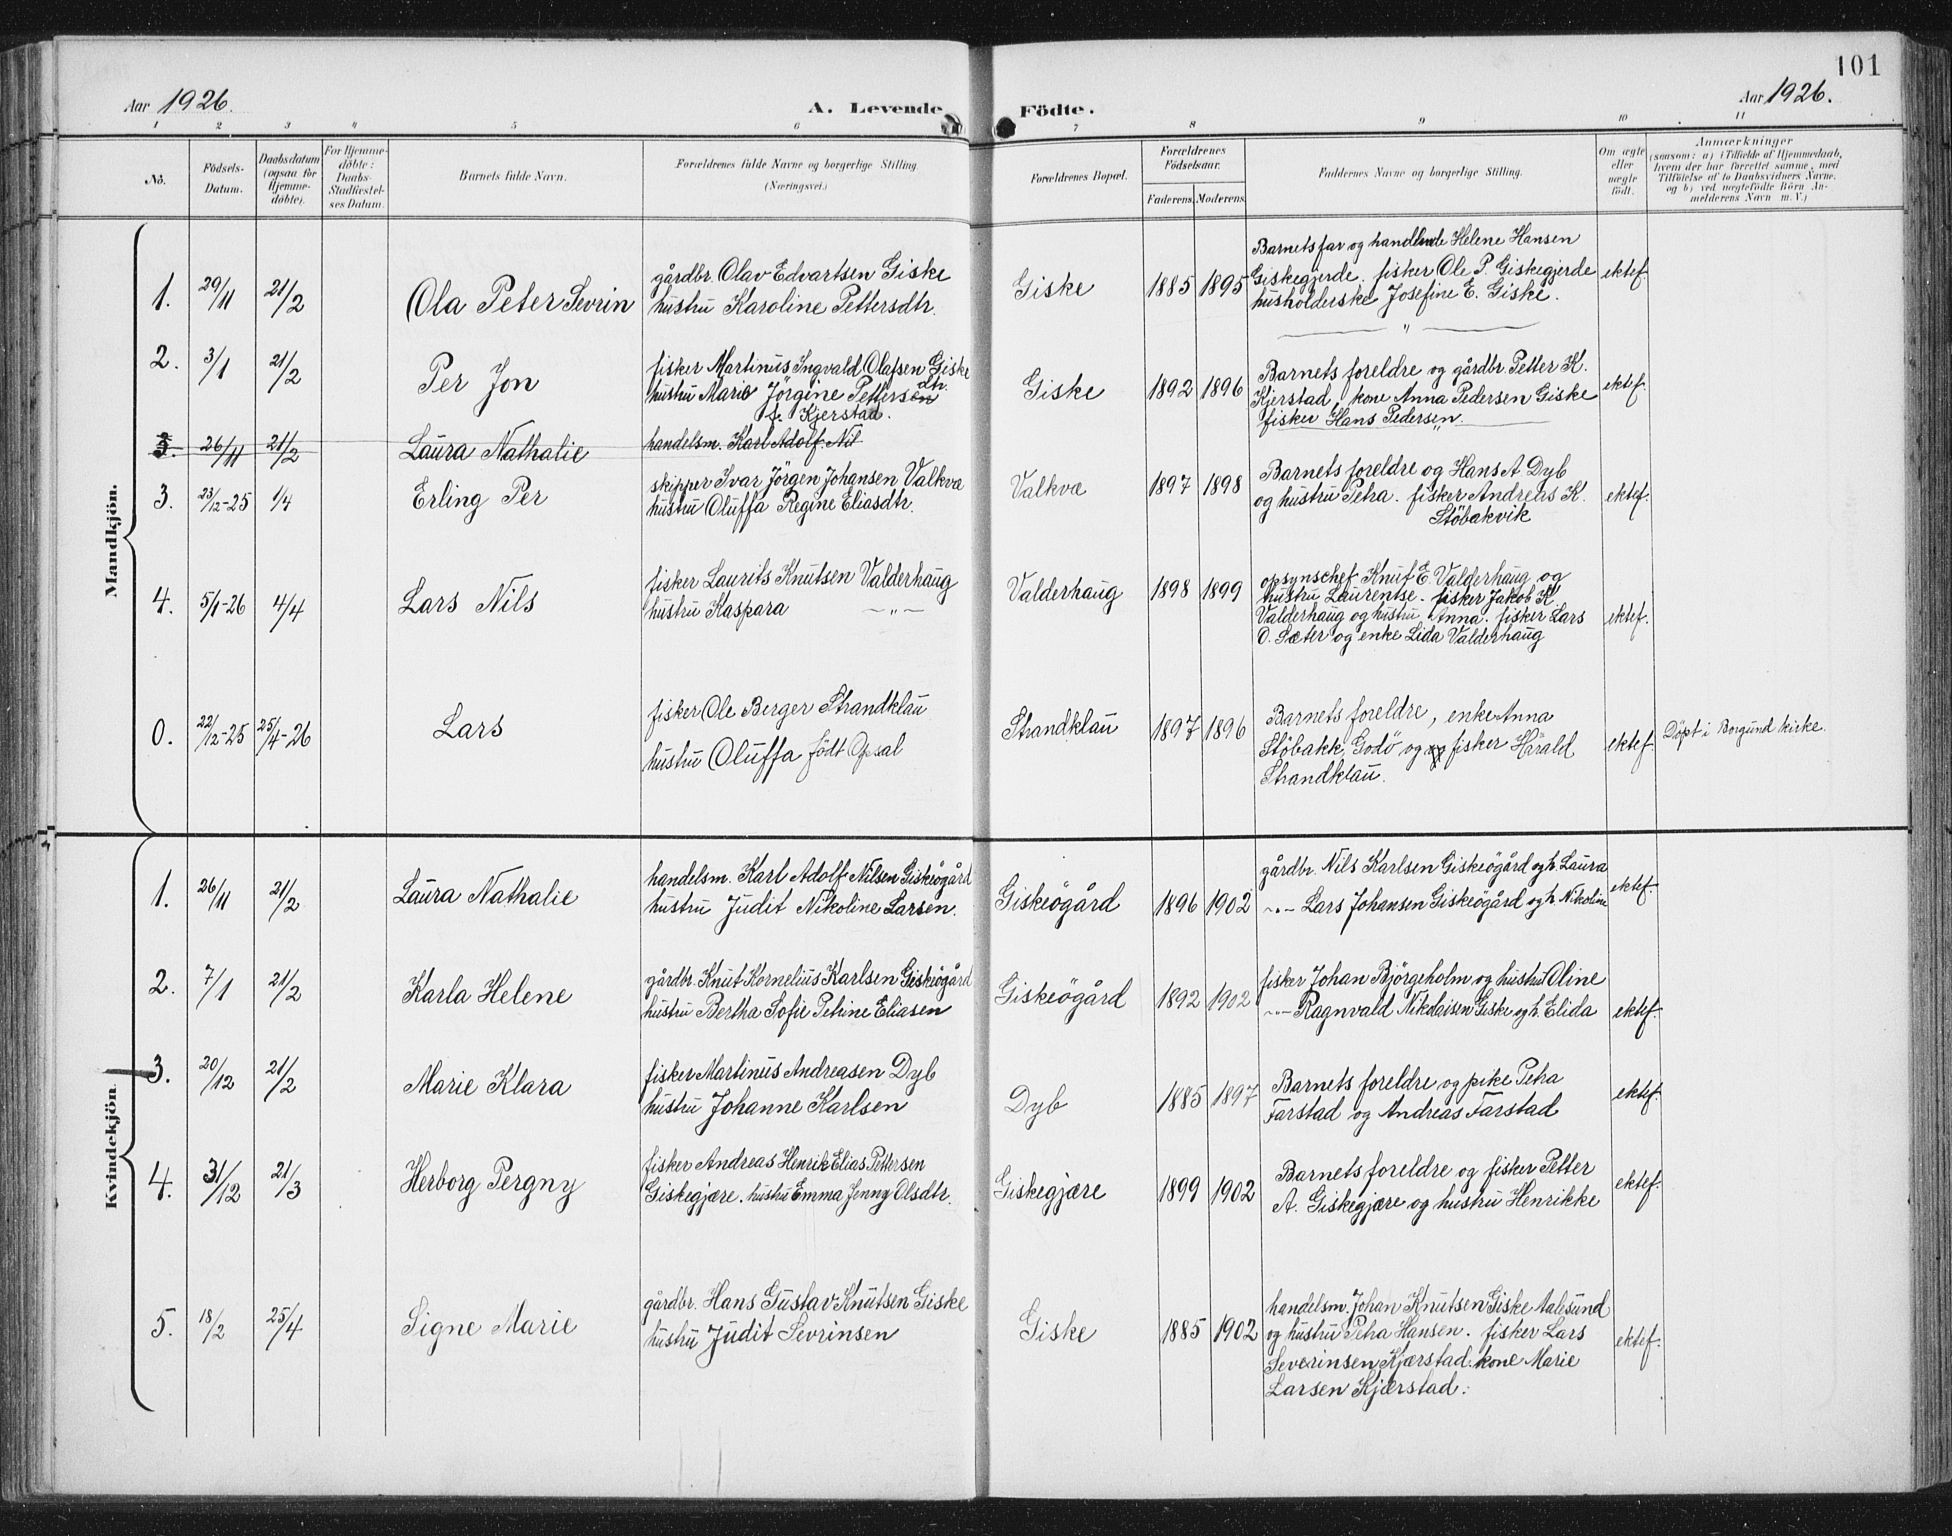 101
Aar 1926.
A. Levende Födte.
Aar 1926.
1 2 3 4 5 6 7 8 9 10 11
No.
Födsels-
Datum.
Daabsdatum
(ogsaa for
Hjemme-
döbte).
For Hjemme-
döbte:
Daabs-
Stadfæstel-
ses Datum.
Barnets fulde Navn.
Forældrenes fulde Navne og borgerlige Stilling.
(Næringsvei.)
Forældrenes Bopæl.
Forældrenes
Födselsaar.
Faderens. Moderens.
Faddernes Navne og borgerlige Stilling.
Om ægte
eller
uægte
födt.
Anmærkninger
(saasom: a) i Tilfælde af Hjemmedaab,
hvem der har forrettet samme, med
Tilföielse af to Daabsvidners Navne,
og b) ved uægtefödte Börn An-
melderens Navn m. V.)
Mandkjön.
1. 29/11 21/2 Ola Peter Sevrin
gårdbr. Olav Edvartsen Giske
hustru Karoline Pettersdtr.
Giske 1885 1895
Barnets far og handlende Helene Hansen
Giskegjerde. fisker Ole P. Giskegjerde
husholderske Josefine E. Giske.
"
ektef.
2. 3/1 21/2 Per Jon
fisker Martinus Ingvald Olafsen Giske
hustru Marie Jörgine Pettersen dtr.
f. Kjerstad.
Giske 1892 1896
Barnets foreldre og gårdbr. Petter K.
Kjerstad kone Anna Pedersen Giske
fisker Hans Pedersen.
ektef.
3. 26/11 21/2 Laura Nathalie
handelsm. Karl Adolf Nil
3. 23/12-25 1/4 Erling Per
skipper Ivar Jörgen Johansen Valkva
hustru Oluffa Regine Eliasdtr.
Valkva 1897 1898
Barnets foreldre og Hans A. Dyb
og hustru Petra. fisker Andreas K.
Stöbakvik
ektef.
4. 5/1-26 4/4 Lars Nils
fisker Laurits Knutsen Valderhaug
hustru Kaspara —"—
Valderhaug 1898 1899
opsynschef Knut E. Valderhaug og
hustru Laurentse. fisker Jakob K.
Valderhaug og hustru Anna. fisker Lars
O. Sæter og enke Lida Valderhaug
ektef.
0. 22/12-25 25/4-26 Lars
fisker Ole Berger Strandklau
hustru Oluffa født Opsal
Strandklau 1897 1896
Barnets foreldre, enke Anna
Stöbakk, Godö og fisker Harald
Strandklau.
ektef. Döpt i Borgund kirke.
Kvindekjön
1. 26/11 21/2 Laura Nathalie
handelsm. Karl Adolf Nilsen Giskeögård
hustru Judit Nikoline Larsen.
Giskeögård 1896 1902
gårdbr. Nils Karlsen Giskeögård og h. Laura
—"— Lars Johansen Giskeögård og h. Nikoline
ektef.
2. 7/1 21/2 Karla Helene
gårdbr. Knut Kornelius Karlsen Giskeögård
hustru Bertha Sofie Petrine Eliasen
Giskeögård 1892 1902
fisker Johan Björgeholm og hustru Oline
—"— Ragnvald Nikolaisen Giske og h. Elida
ektef.
3. 20/12 21/2 Marie Klara
fisker Martinus Andreasen Dyb
hustru Johanne Karlsen
Dyb 1885 1897
Barnets foreldre og pike Petra
Farstad og Andreas Farstad
ektef.
4. 31/12 21/3 Herborg Pergny
fisker Andreas Henrik Elias Pettersen
Giskegjære. hustru Emma Jenny Olsdtr.
Giskegjære 1899 1902
Barnets foreldre og fisker Petter
A. Giskegjære og hustru Henrikke
ektef.
5. 18/2 25/4 Signe Marie
gårdbr. Hans Gustav Knutsen Giske
hustru Judit Sevrinsen
Giske 1885 1902
handelsm. Johan Knutsen Giske Aalesund
og hustru Petra Hansen. fisker Lars
Severinsen Kjærstad. kone Marie
Larsen Kjærstad.
ektef.